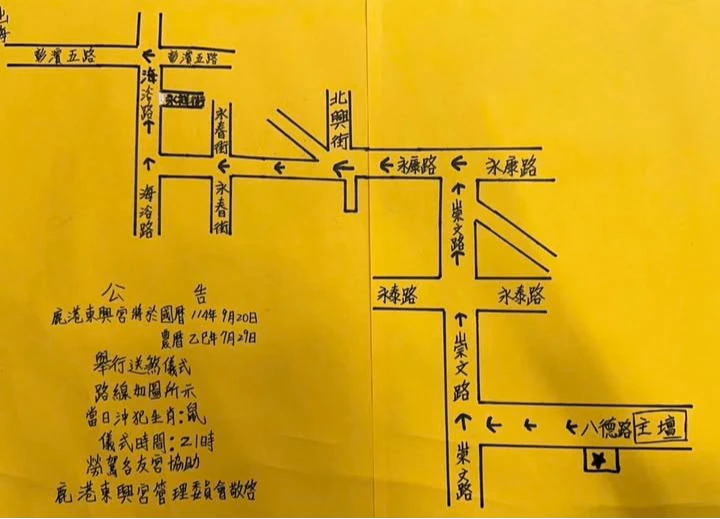 彰濱五路
彰濱五路
海浴路
永春街
北興街
永康路
永康路
海浴路
永春街
崇文路
永泰路
永泰路
崇文路
八德路
主壇
崇文路
公告
鹿港東興宮將於國曆114年9月20日
農曆乙巳年7月29日
舉行送煞儀式
路線如圖所示
當日沖犯生肖:鼠
儀式時間:21時
勞駕各友宮協助
鹿港東興宮管理委員會敬啓